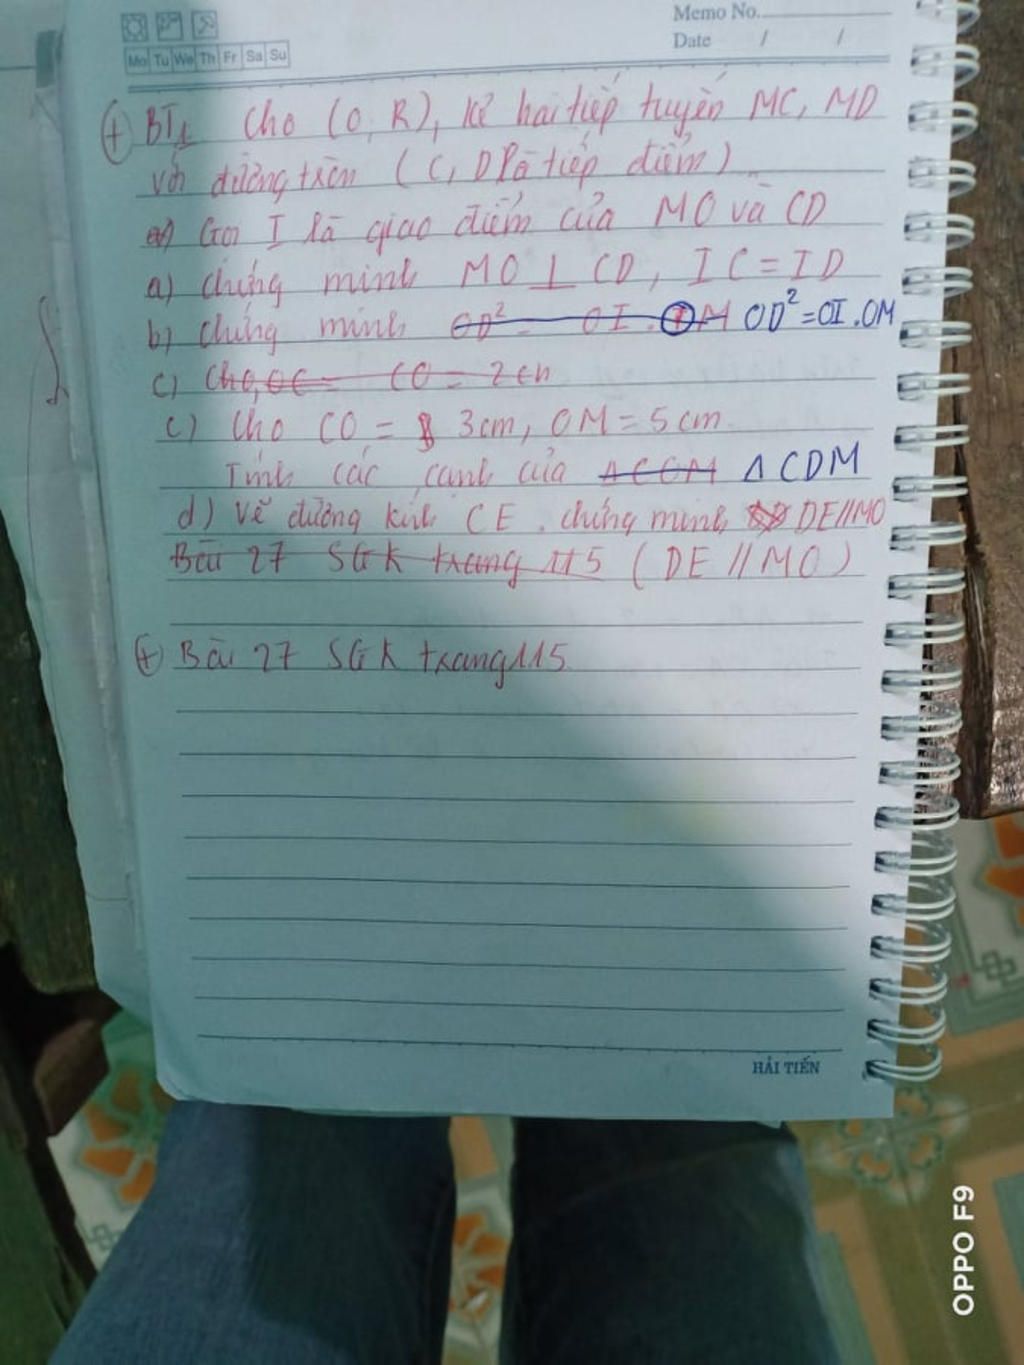 Memo No.
Date / /
Mo Tu We Th Fr Sa Su
+ BT1 Cho (O, R), kẻ hai tiếp tuyến MC, MD
với đường tròn (C, D là tiếp điểm)
a) Gọi I là giao điểm của MO và CD
a) chứng minh MO ⊥ CD, IC = ID
b) chứng minh OD² = OI . OM OD² = OI . OM
c) Cho, OC = CO = 2cm
c) Cho CO = 3cm, OM = 5cm
Tính các cạnh của ΔCOM ΔCDM
d) Vẽ đường kính CE. chứng minh DE//MO
Bài 27 SGK trang 115 (DE // MO)
+ Bài 27 SGK trang 115.
HẢI TIẾN
OPPO F9